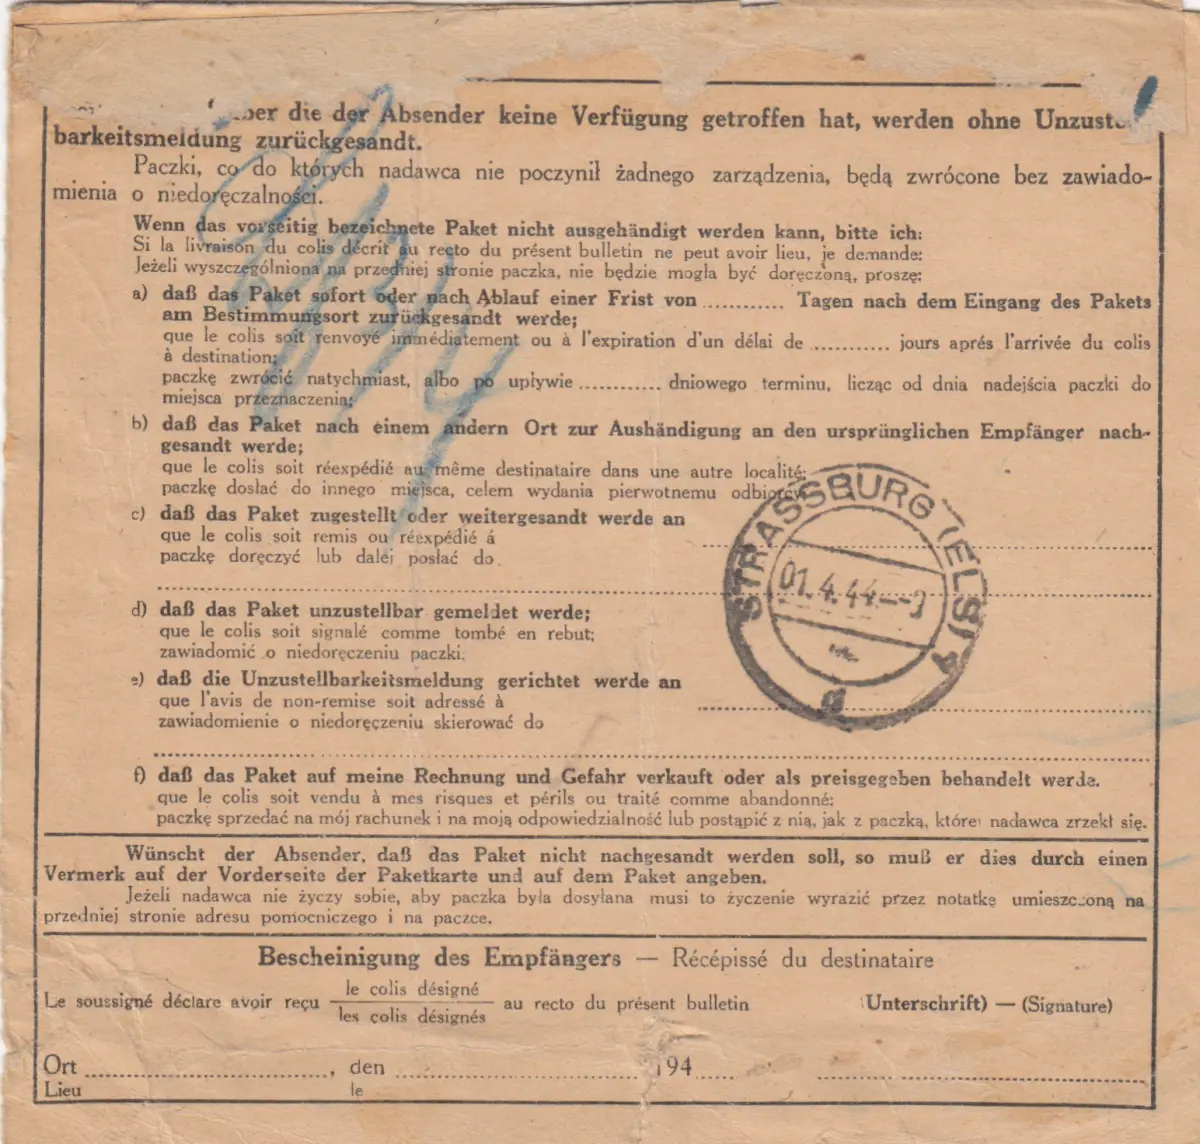 die der Absender keine Verfügung getroffen hat, werden ohne
barkeitsmeldung zurückgesandt.
Paczki, co do których nadawca nie poczynił żadnego zarządzenia, będą zwrócone bez zawiado-
mienia o niedoręczalności.
Wenn das vorseitig bezeichnete Paket nicht ausgehändigt werden kann, bitte ich:
Si la livraison du colis décrit au recto du présent bulletin ne peut avoir lieu, je demande:
Jeżeli wyszczególniona na przedniej stronie paczka, nie będzie mogła być doręczoną, proszę:
a) daß das Paket sofort oder nach Ablauf einer Frist von ............ Tagen nach dem Eingang des Pakets
am Bestimmungsort zurückgesandt werde;
que le colis soit renvoyé immédiatement ou à l'expiration d'un délai de ............ jours aprés l'arrivée du colis
à destination;
paczkę zwrócić natychmiast, albo po upływie ............ dniowego terminu, licząc od dnia nadejścia paczki do
miejsca przeznaczenia;
b) daß das Paket nach einem andern Ort zur Aushändigung an den ursprünglichen Empfänger nach-
gesandt werde;
que le colis soit réexpédié au même destinataire dans une autre localité;
paczkę dosłać do innego miejsca, celem wydania pierwotnemu odbiorcy.
c) daß das Paket zugestellt oder weitergesandt werde an
que le colis soit remis ou réexpédié á
paczkę doręczyć lub dalej posłać do.
STRASSBURG (ELS) 4
01.4.44
d
d) daß das Paket unzustellbar gemeldet werde;
que le colis soit signalé comme tombé en rebut;
zawiadomić o niedoręczeniu paczki.
e) daß die Unzustellbarkeitsmeldung gerichtet werde an
que l'avis de non-remise soit adressé à
zawiadomienie o niedoręczeniu skierować do
f) daß das Paket auf meine Rechnung und Gefahr verkauft oder als preisgegeben behandelt werde.
que le colis soit vendu à mes risques et périls ou traité comme abandonné:
paczkę sprzedać na mój rachunek i na moją odpowiedzialność lub postąpić z nią, jak z paczką, której nadawca zrzekł się.
Wünscht der Absender, daß das Paket nicht nachgesandt werden soll, so muß er dies durch einen
Vermerk auf der Vorderseite der Paketkarte und auf dem Paket angeben.
Jeżeli nadawca nie życzy sobie, aby paczka była dosyłana musi to życzenie wyrazić przez notatkę umieszczoną na
przedniej stronie adresu pomocniczego i na paczce.
Bescheinigung des Empfängers — Récépissé du destinataire
Le soussigné déclare avoir reçu le colis désigné
les colis désignés au recto du présent bulletin (Unterschrift) — (Signature)
Ort ............................., den ............................. 194......
Lieu le